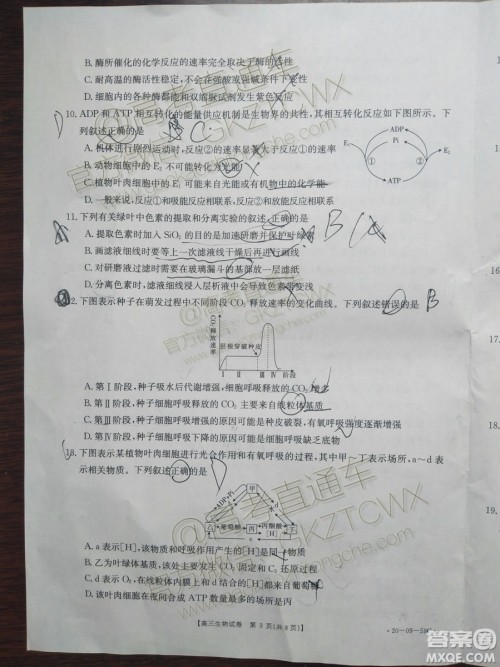 B. 酶所催化的化学反应的速率完全取决于酶的活性
C. 耐高温的酶活性稳定,不会在高温或强酸条件下变性
D. 细胞内的各种酶都能和双缩脲试剂发生紫色反应
10. ADP 和 ATP 相互转化的能量供应机制是生物界的共性,其相互转化反应如下图所示。下
列叙述正确的是
B C
A. 机体进行剧烈运动时,反应①的速率显著大于反应②的
B. 动物细胞中的 E₁ 不可能转化为光能
C. 植物叶肉细胞中的 E₁ 可能来自光能或有机物中的化学能
D. 一般来说,反应①和吸能反应相联系,反应②和放能反应相联系
ADP
Pi
E₁
E₂
①
②
ATP
11. 下列有关绿叶中色素的提取和分离实验的叙述,正确的是
B
A. 提取色素时加入 SiO₂ 的目的是加速研磨并保护叶绿素
B. 画滤液细线时要等上一次滤液线干燥后再进行画线
C. 对研磨液过滤时需要在玻璃漏斗的基部放一层滤纸
D. 分离色素时,滤液细线浸入层析液中会导致色素带变浅
12. 下图表示种子在萌发过程中不同阶段 CO₂ 释放速率的变化曲线。下列叙述错误的是
B
CO₂释放速率
胚根穿破种皮
Ⅰ Ⅱ Ⅲ Ⅳ 阶段
A. 第Ⅰ阶段,种子吸水后代谢增强,细胞呼吸释放的 CO₂ 增多
B. 第Ⅱ阶段,种子细胞呼吸释放的 CO₂ 主要来自线粒体基质
C. 第Ⅲ阶段,种子细胞呼吸增强的原因可能是种皮破裂,有氧呼吸强度逐渐增强
D. 第Ⅳ阶段,种子细胞呼吸下降的原因可能是细胞呼吸缺乏底物
13. 下图表示某植物叶肉细胞进行光合作用和有氧呼吸的过程,其中甲~丁表示场所,a~d 表
示相关物质。下列叙述正确的是
D
ADP+Pi
甲
葡萄糖
丙
丙酮酸
[H]
丁
[H]
A. a 表示[H],该物质和呼吸作用产生的[H]是同一物质
B. 乙为叶绿体基质,该处主要发生 CO₂ 固定和 C₃ 还原过程
C. d 表示 O₂,在线粒体内膜上和 d 结合的[H]都来自葡萄糖
D. 该植物叶肉细胞在夜间合成 ATP 数量最多的场所是丙
【高三生物试卷 第 3 页(共 8 页)】
·20-05-
16
17.
18.
19.
高考直通车
官方微信号:GKZTCWX
高考直通车
GKZTCWX
答案圈
MXQE.COM